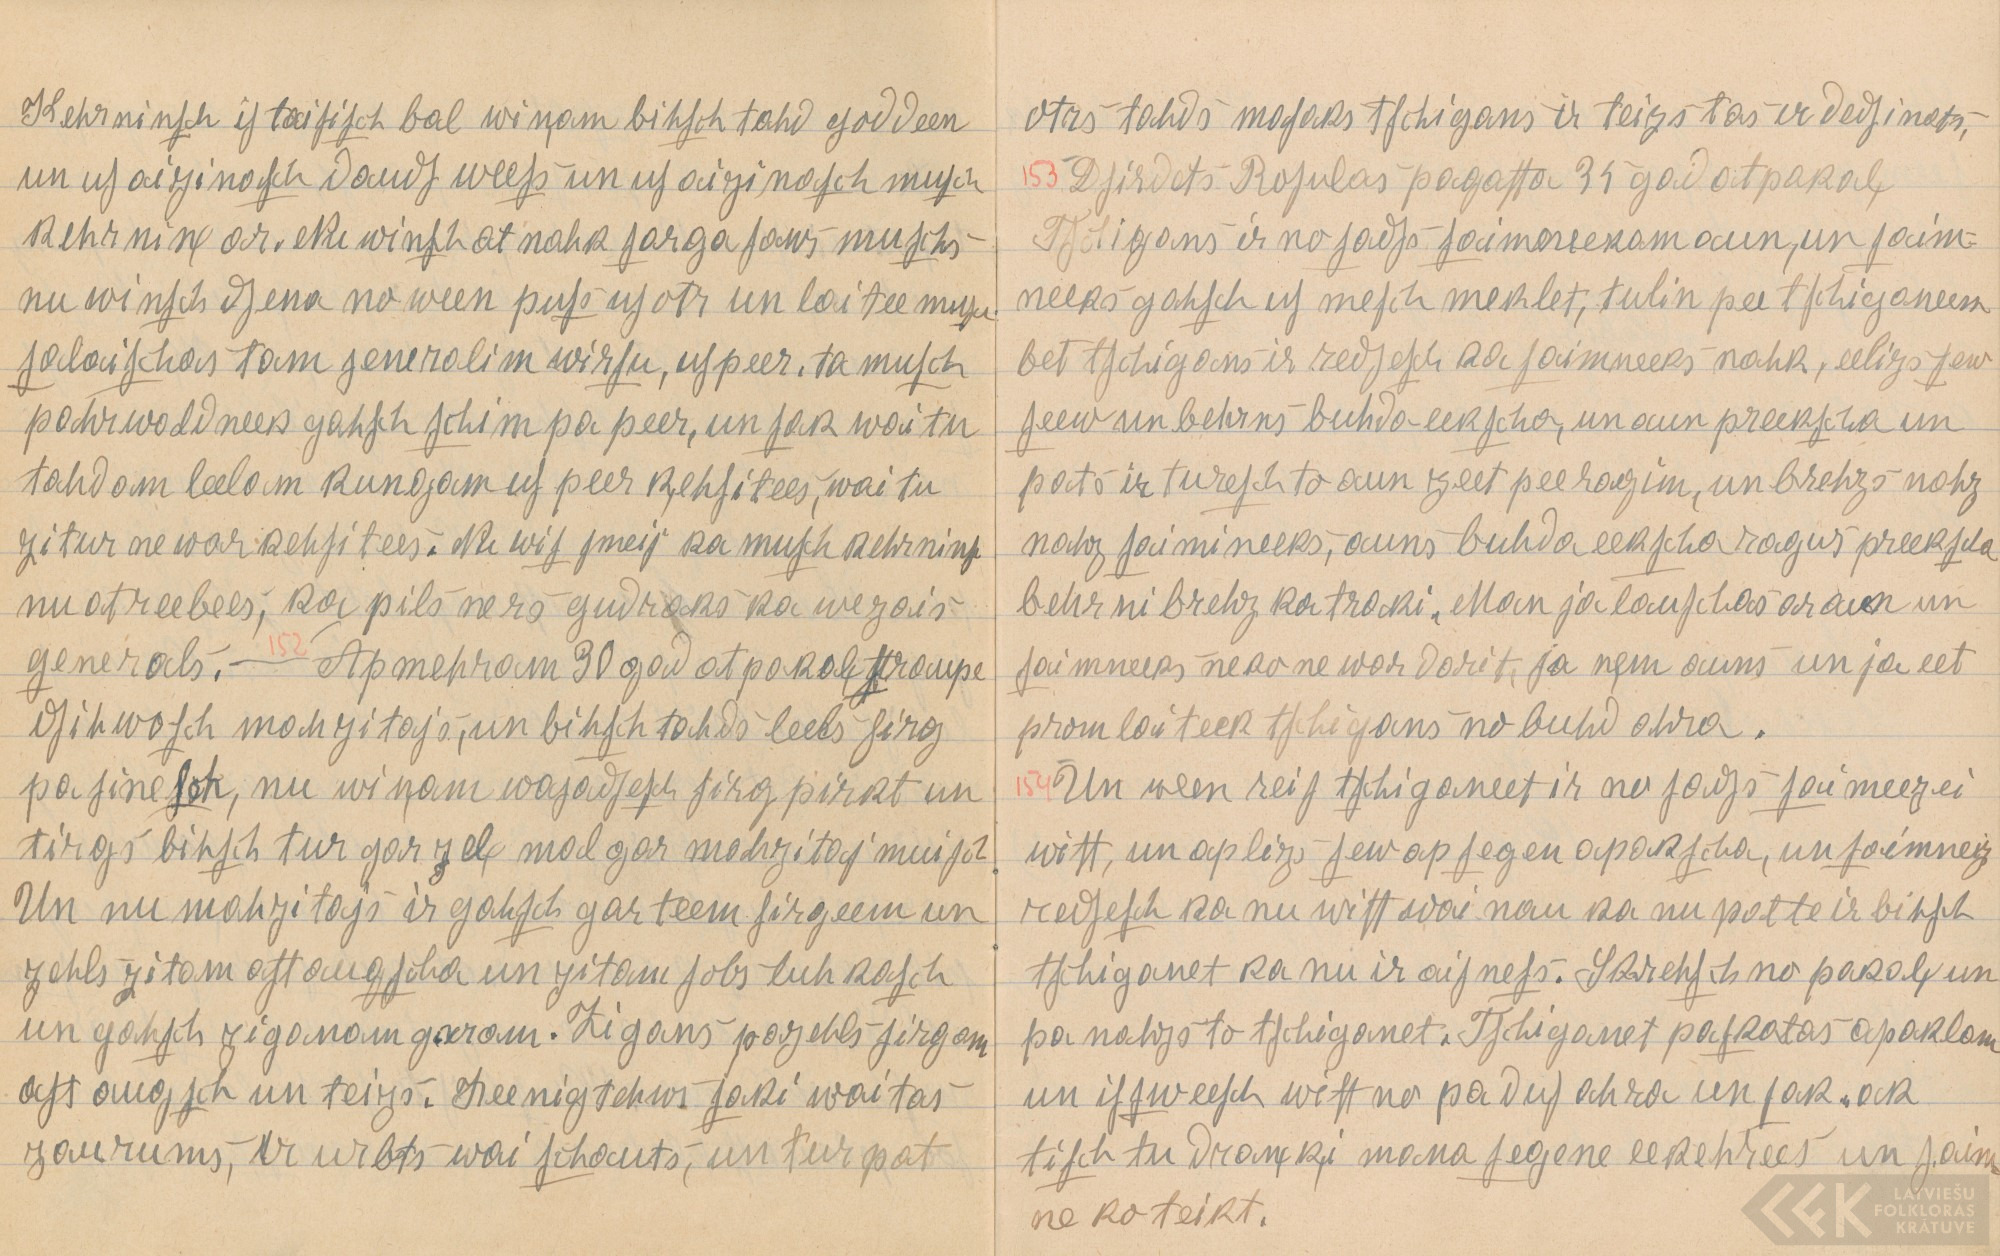 Kehrninsch is taisisch bal wiņam bihsch tahd goddeen
un us aizinasch daudf weess un us aizinasch musch
kehrniņ ar. Nu winsch at nahk sarga saws muschs
nu winsch dsena no ween puss us otr un lai tee musch
salaischas tam generalim wirsu, us peer. ta musch
pahrwaldneek gahsch schim pa peer, un sak wai tu
tahdam leelam kungam us peer ķehsitees, wai tu
zitur ne war kehsitees. Nu wis smeij ka musch kehrninsch
nu atreebees, ka pilsners gudraks ka wezais
generals. — 152 Apmehram 30 gad atpakaļ straupe
dsihwasch mahzitajs, un bihsch tahds leels sirg
pasinesch, nu wiņam wajadsesch sirg pirkt un
tirgs bihsch tur gar zeļ mal gar mahzitaj muisch
Un nu mahzitajs ir gahsch gar teem sirgeem un
zehls zitam asti augscha un zitam sobs luhkasch
un gahsch ziganam garam. Zigans pazehls sirgam
ast augsch un teizs. Zeenigtehws saki wai tas
zaurums, ir urbts wai schauts, un turpat
otrs tahds masaks tschigans ir teizs tas ir dedsinats,
153 Dsirdets Rosulas pagasta 35 gad atpakaļ
Tschigans ir no sadss saimneekam aun, un saim-
neeks gahsch us mesch meklet, tulin pee tschiganeem
bet tschigans ir redsesch ka saimneeks nahk, eelizs sew
seew un behrns buhda eekscha, un aun preekscha un
pats ir turesch to aun zeet pee ragim, un brehzs nahz
nahz saimineeks, auns buhda eekscha ragus preekscha
behrni brehz ka traki. Man jalauschas ar aun un
saimneeks neko ne war darit, ja ņem auns un ja eet
prom lai teek tschigans no buhd ahra.
154 Un ween reis tschiganeet ir no sadss saimeezei
wist, un aplizs sew ap segen apakscha, un saimneiz
redsesch ka nu wist wai nau ka nu pat te ir bihsch
tschiganet ka nu ir aisness. Skrehsch no pakaļ un
pa nahzs to tschiganet. Tschiganet paskatas apaklam
un issweesch wist no padus ahra un sak. ak
tisch tu draņķi mana segene eekehrees un saim-
ne ko teikt.
LATVIEŠU
FOLKLORAS
KRĀTUVE